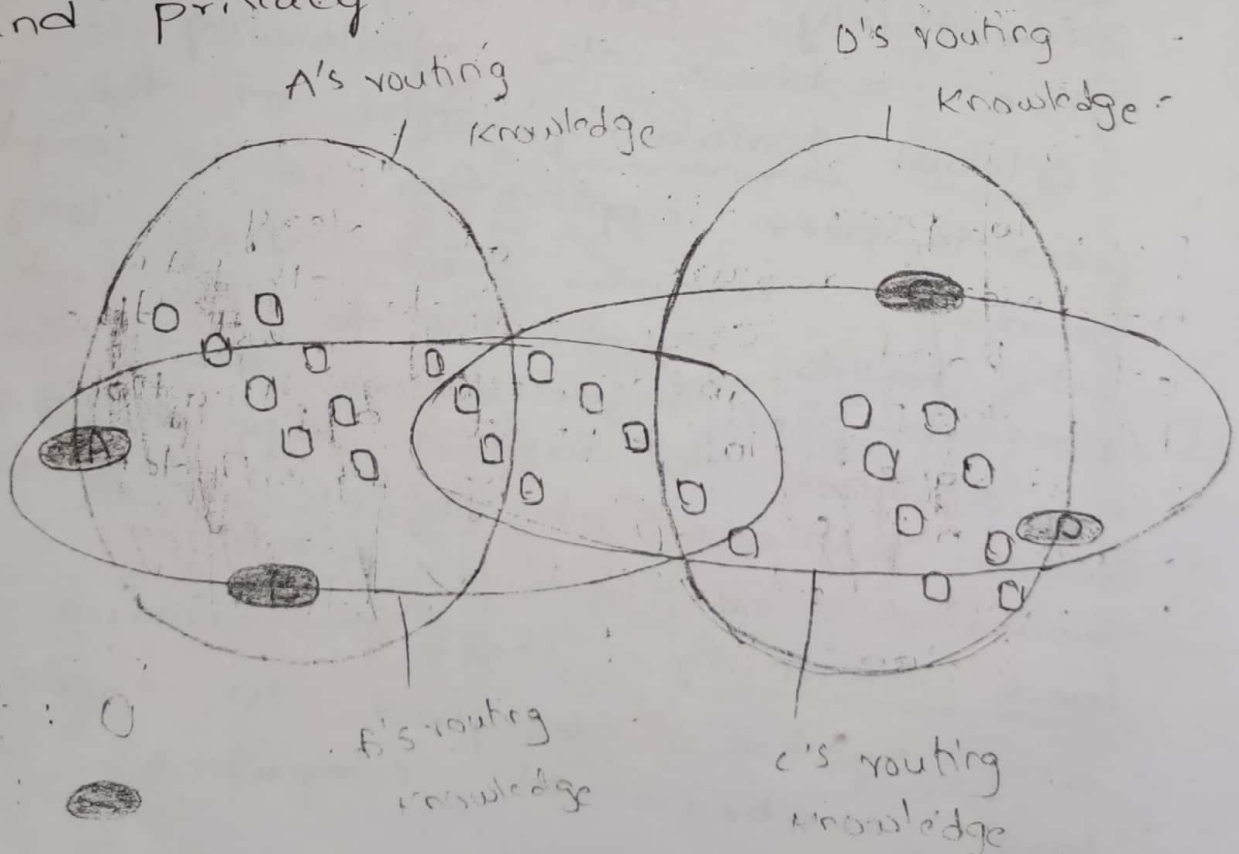 and privacy
A's routing
knowledge
D's routing
Knowledge
A
D
:
B's routing
knowledge
C's routing
knowledge